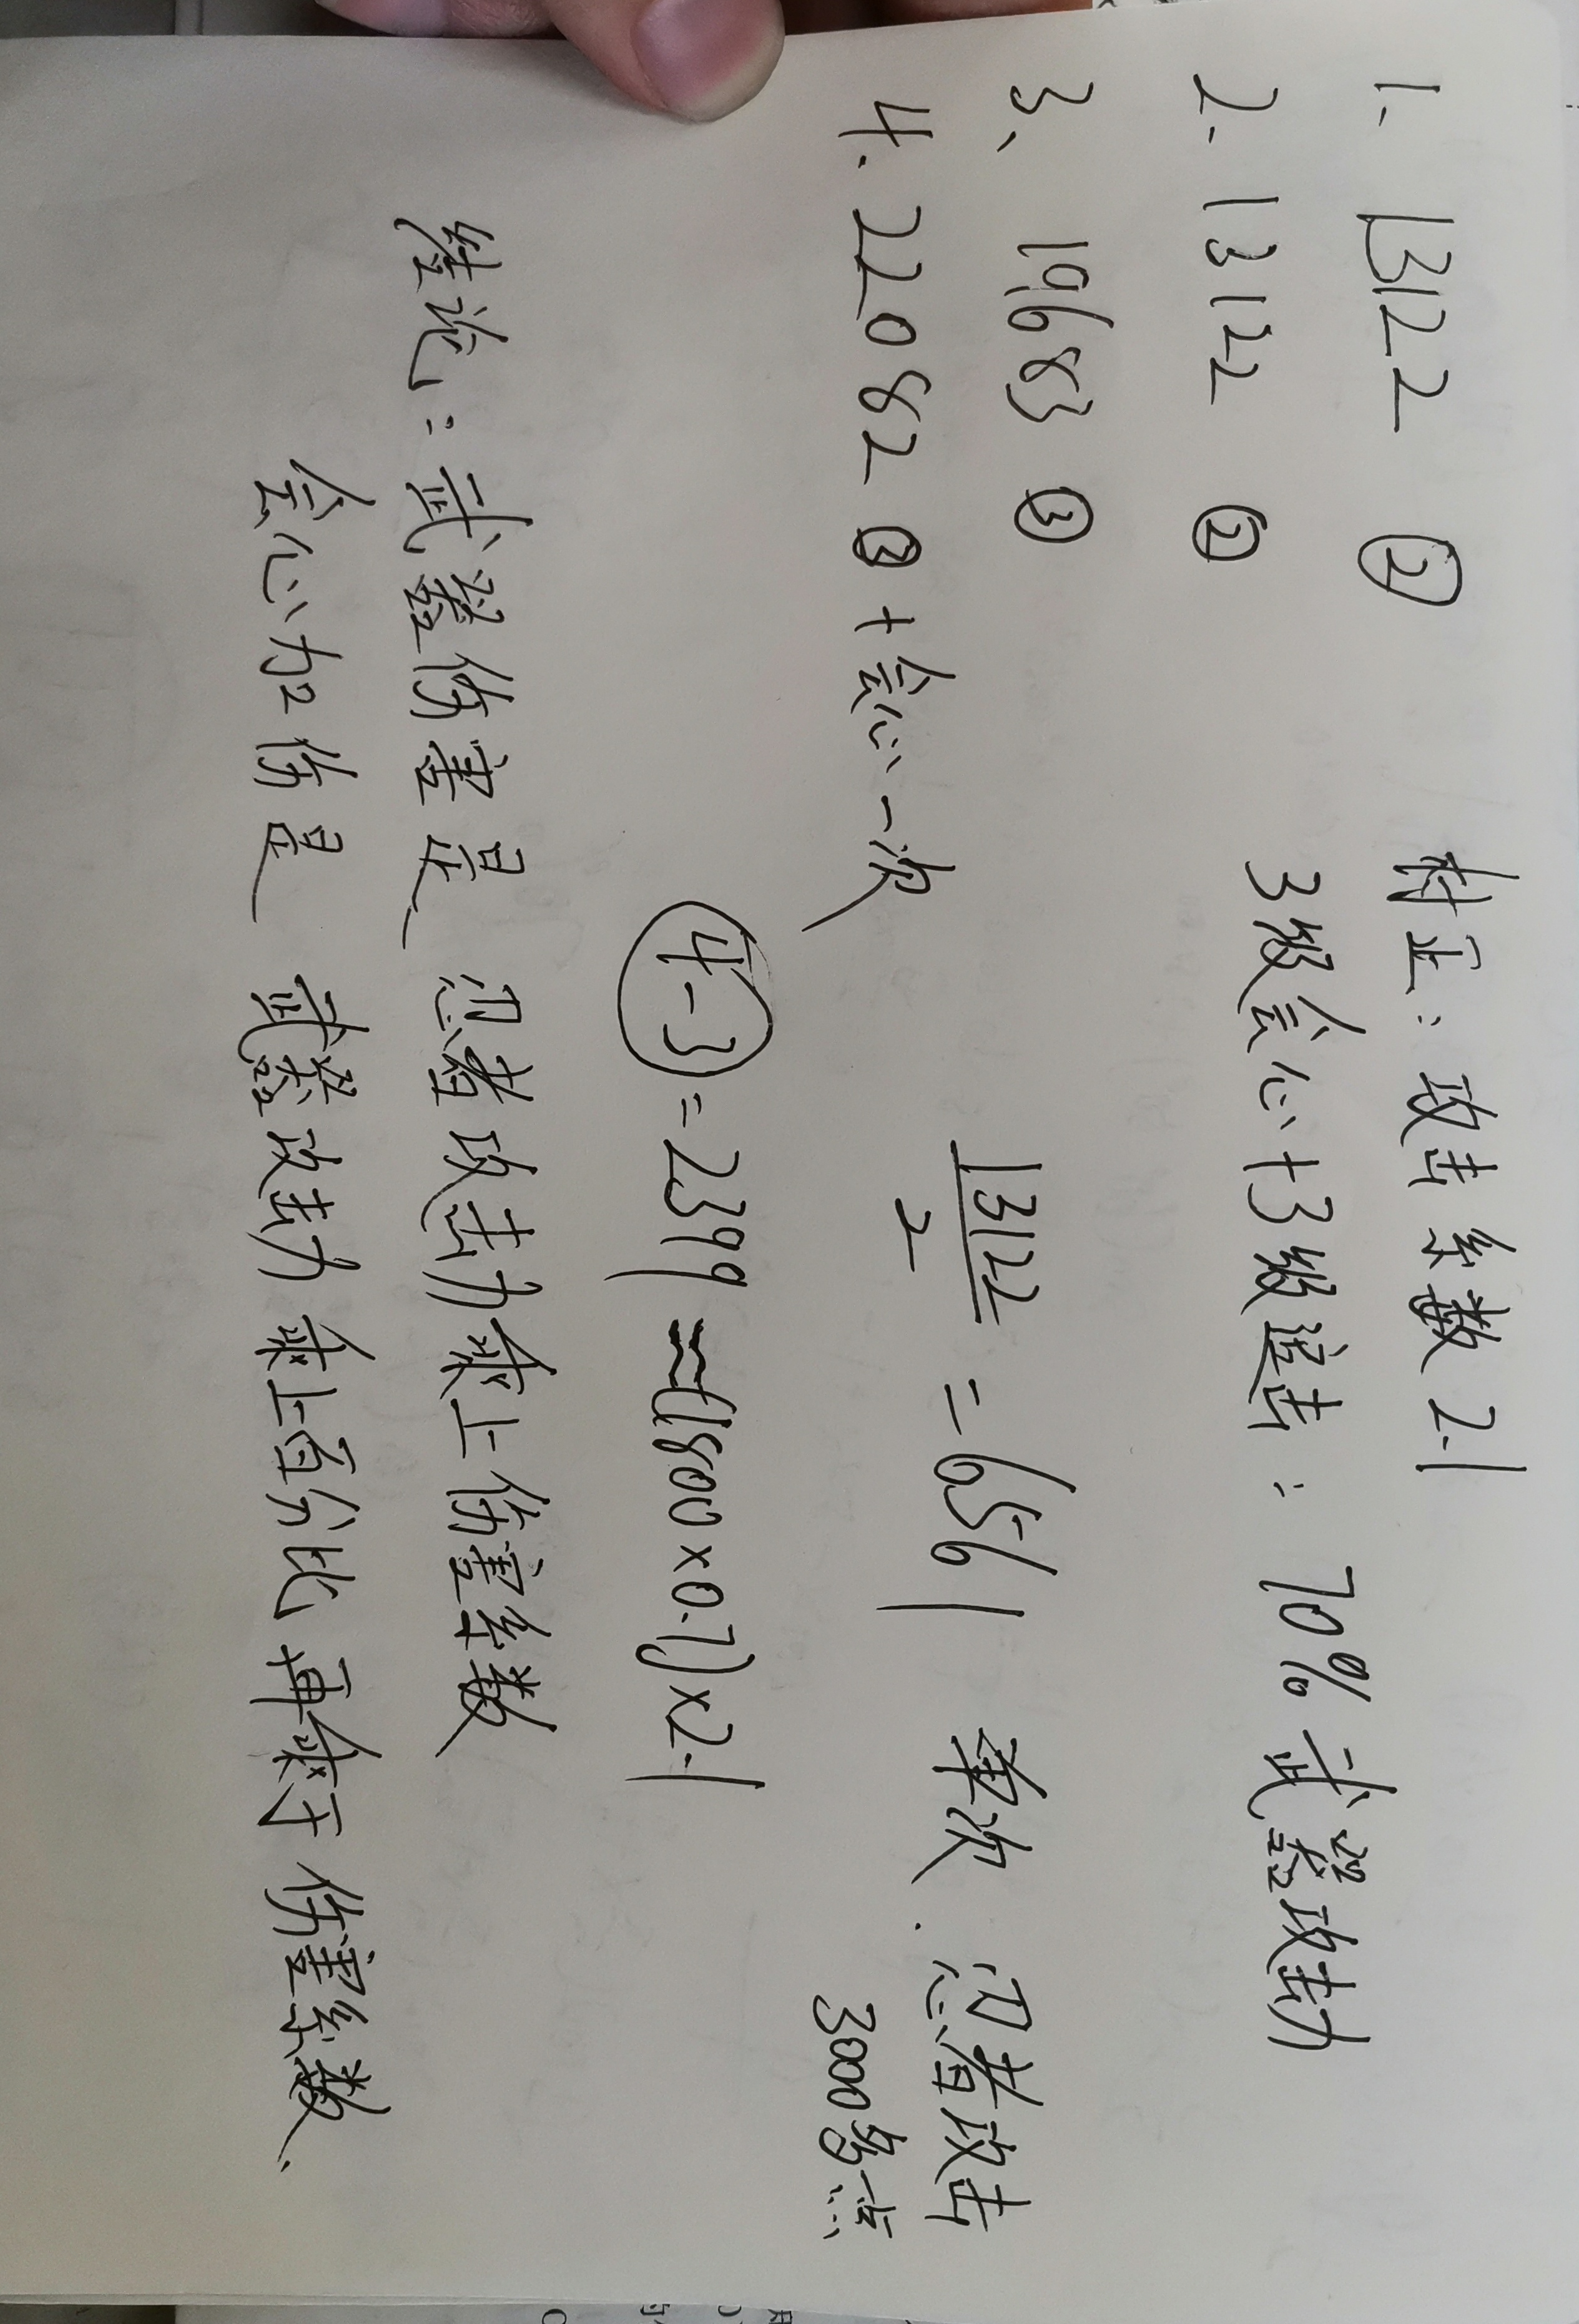 1、13122 ②
村正：攻击系数2.1
2.13122 ②
3级会心+3级连击：70%武器攻击力
3、19683 ③
13122/2 = 6561 单次.忍者攻击3000多点
4.22082 ③+会心一次
4-3=2399≈(1800×0.7)×2.1
结论：武器伤害是忍者攻击力乘上伤害系数
会心加2伤是武器攻击力乘上百分比再乘于伤害系数、